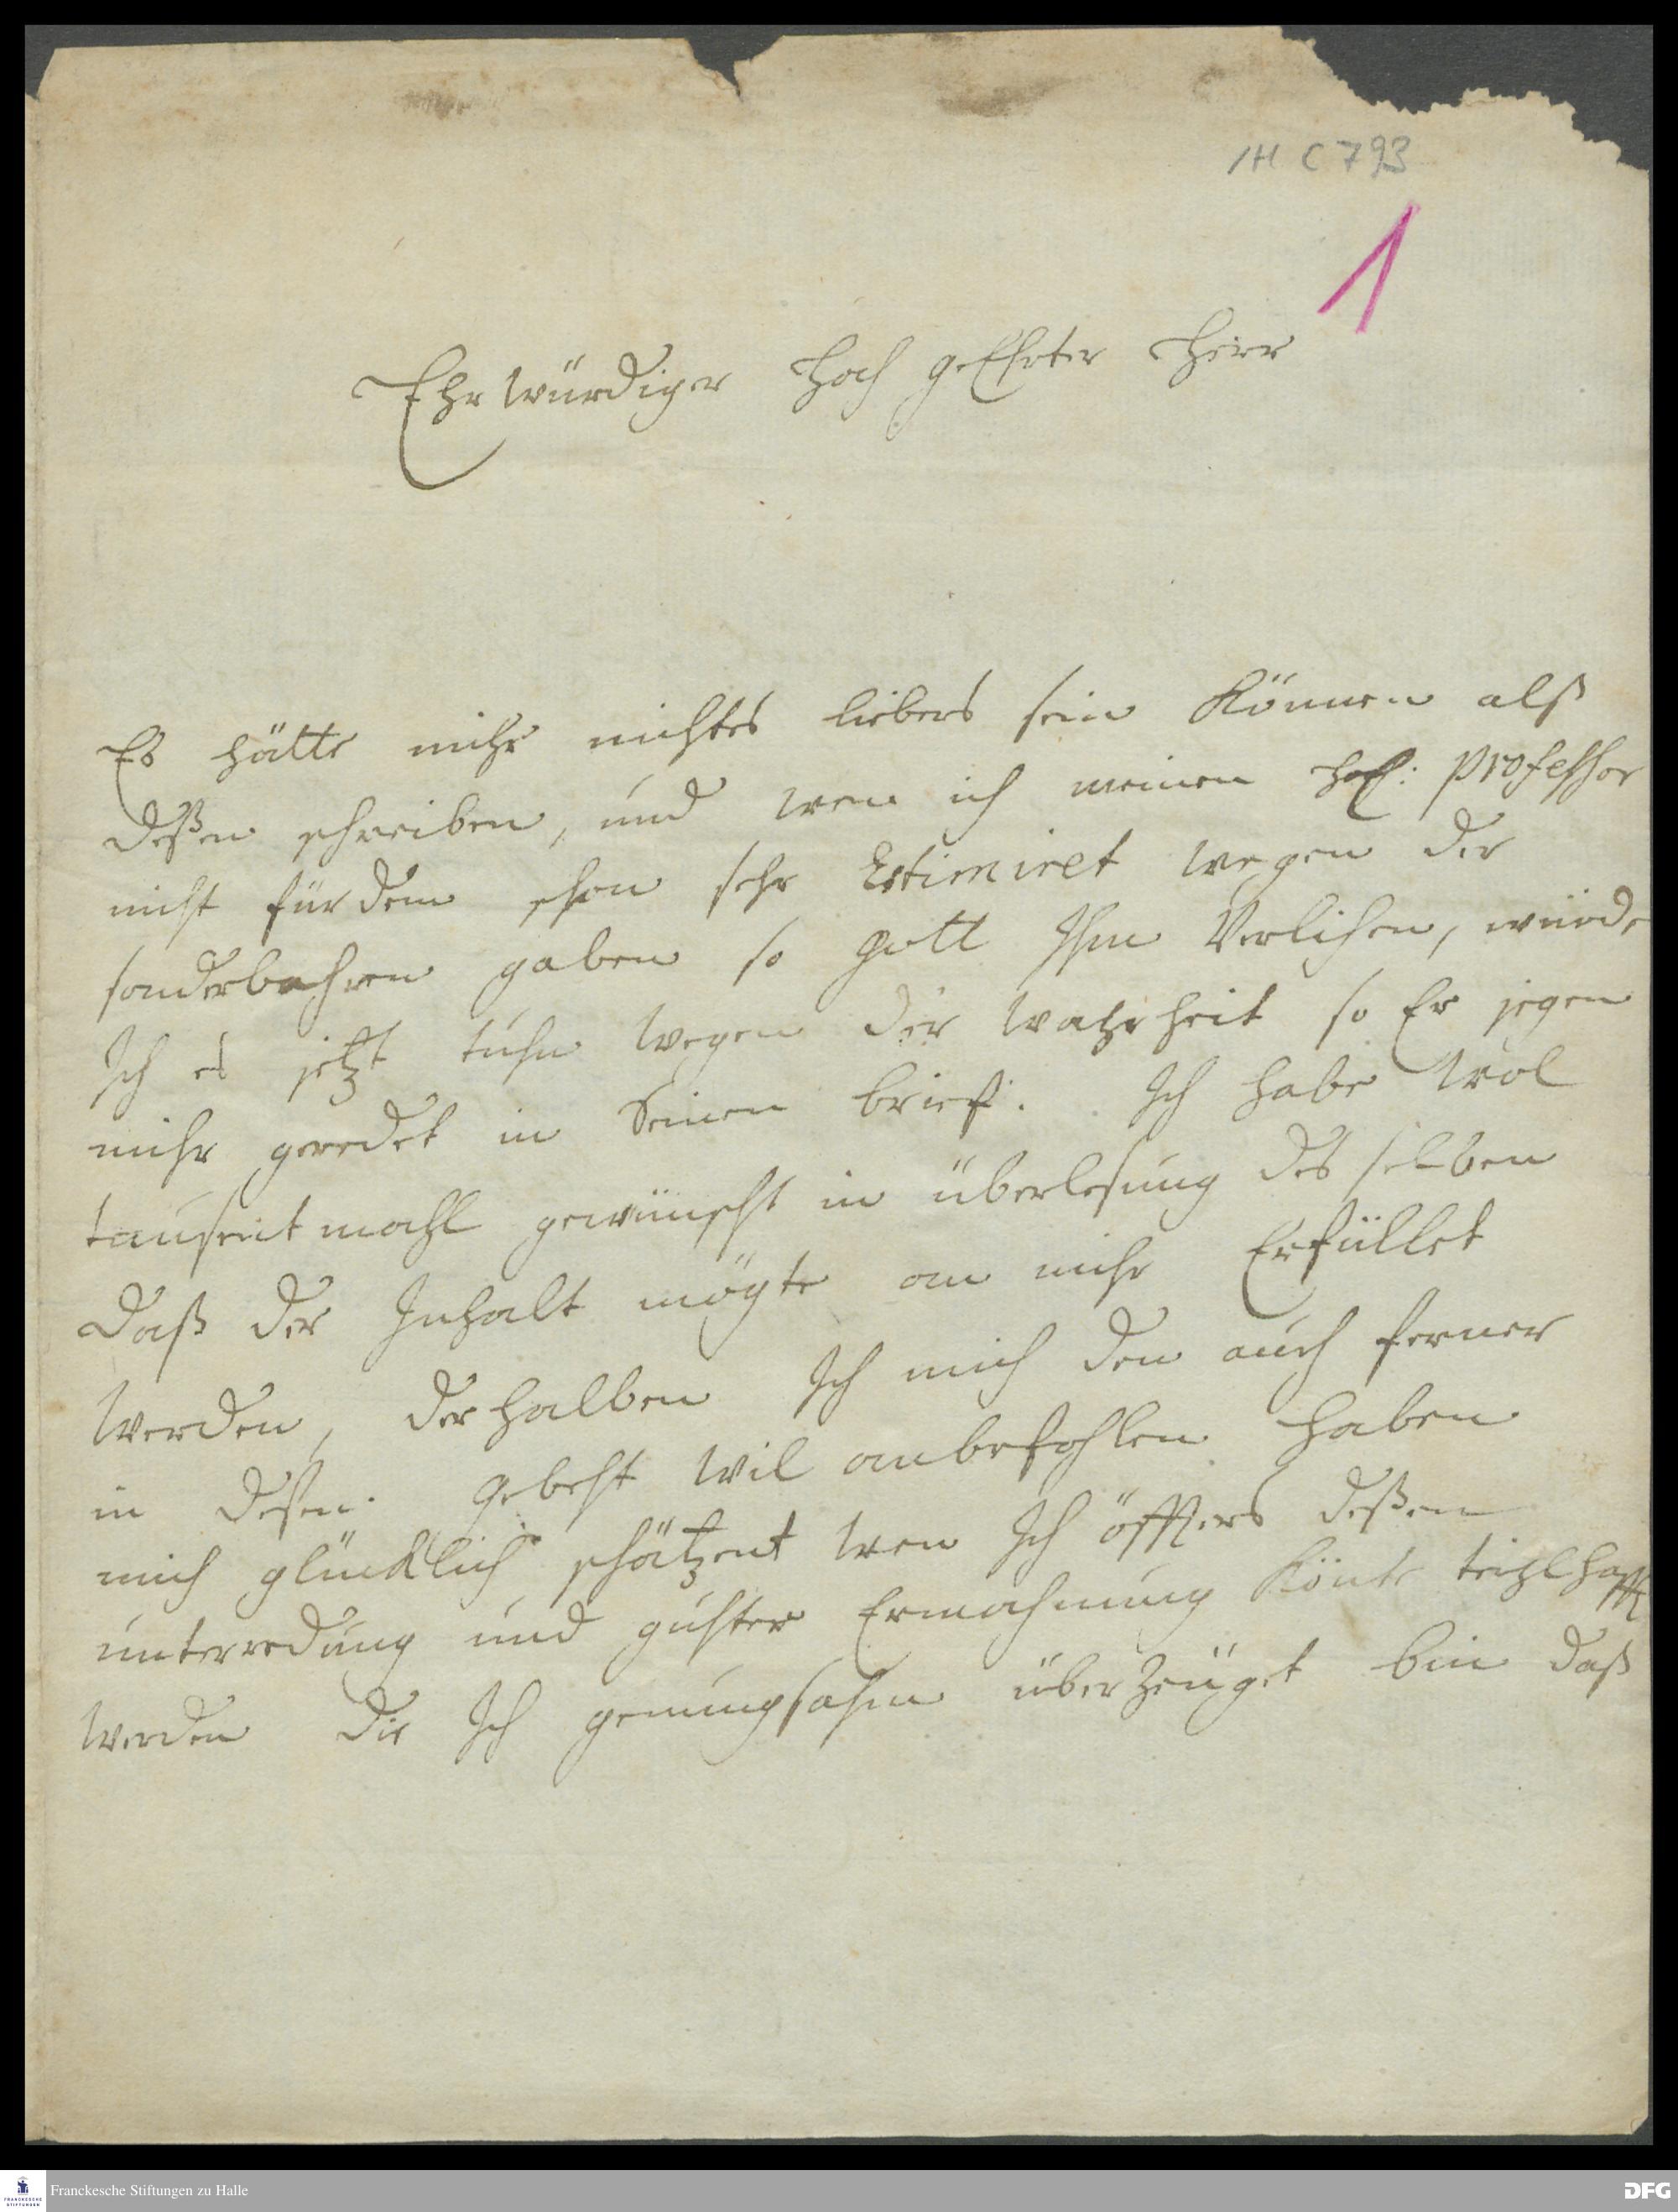 1H C 793
1
Ehrwürdiger Hoch geEhrter Herr
Es hätte mihr nichtes liebers sein Können alß
deßen schreiben, und wen ich meinen professor
nicht für dem schon sehr Estimiret wegen der
sonderbahren gaben so gott Ihm Verlihen, würde
Ich es jetzt tuhn wegen der wahrheit so Er jegen
mihr geredet in Seinen brief. Ich habe wol
tausent mahl gewünscht in überlesung des selben
daß der Inhalt mögte an mihr Erfüllet
werden, derhalben Ich mich den auch ferner
in deßen gebeht wil anbefohlen haben
mich glücklich schätzent wen Ich öffters deßen
unterredung und guhter Ermahnung Könte teihlhafft
werden die Ich genungsahm überzeuget bin daß
Franckesche Stiftungen zu Halle
FRANCKESCHE
STIFTUNGEN
DFG